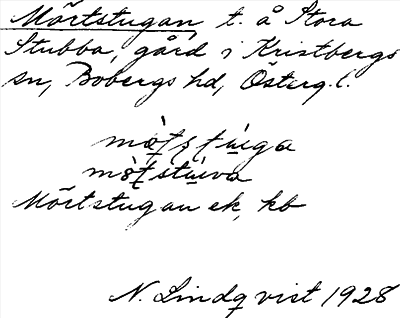 Mörtstugan t. å Stora
Stubba, gård i Kristbergs
sn, Bobergs hd, Österg. l.
Mörtstugan ek, kb
N. Lindqvist 1928